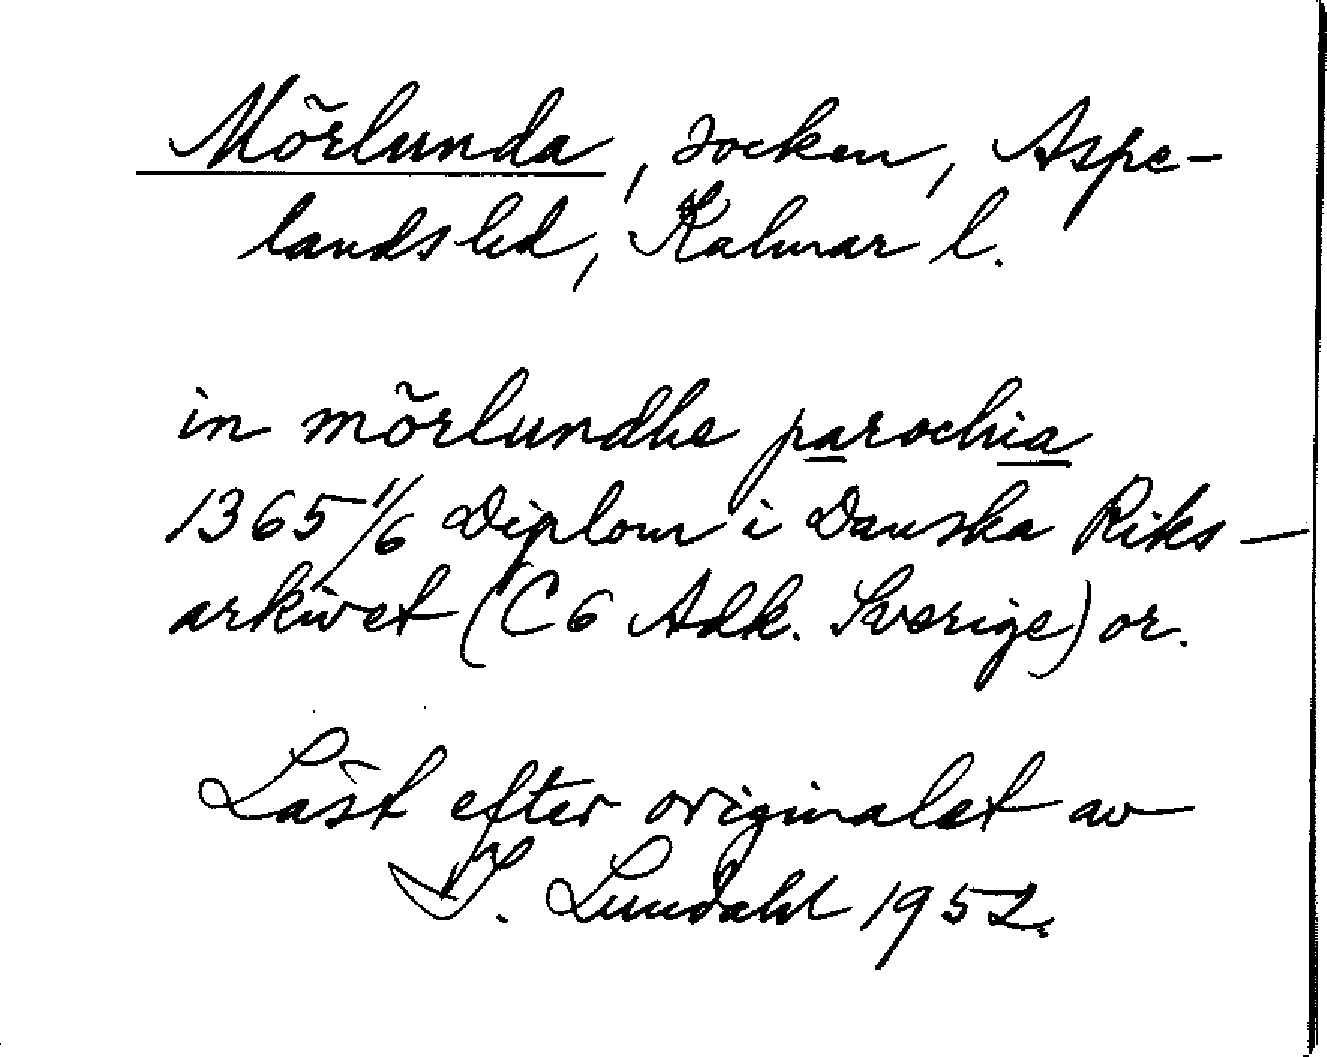 Mörlunda, socken, Aspe-
landsled, Kalmar l.
in mörlundhe parochia
1365 1/6 Diplom i Danska Riks-
arkivet (C6 Adk. Sverige) or.
Läst efter originalet av
I. Lundahl 1952.